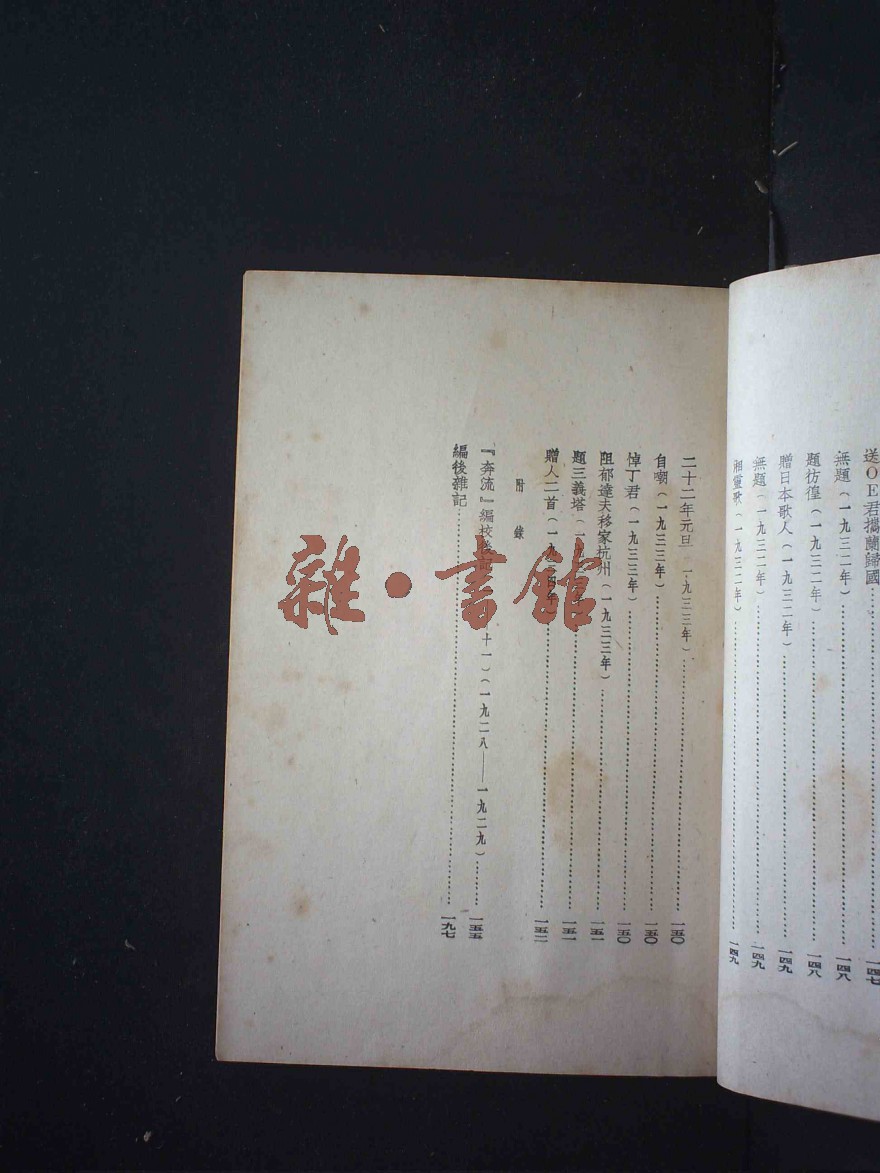 送OE君攜蘭歸國……一四七
無題(一九三一年)……一四八
題彷徨(一九三二年)……一四八
贈日本歌人(一九三二年)……一四九
無題(一九三一年)……一四九
湘靈歌(一九三二年)……一四九
二十二年元旦 一九三三年)……一五〇
自嘲(一九三三年)……一五〇
悼丁君(一九三三年)……一五〇
阻郁達夫移家杭州(一九三三年)……一五一
題三義塔(一九 年)……一五一
贈人二首(一九三四年)……一五二
附 錄
『奔流』編校後記 十一)(一九二八——一九二九)……一五五
編後雜記……一九七
雜·書館